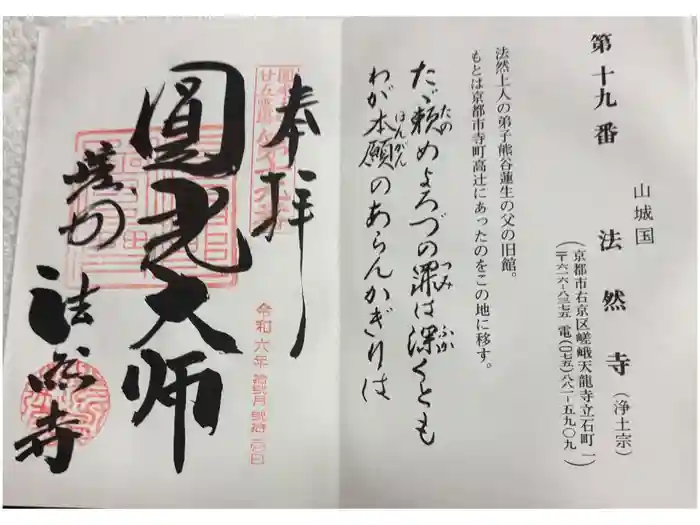 第十九番
山城国
法然寺（浄土宗）
（京都市右京区嵯峨天龍寺立石町一
〒六一六-八三七五 電(〇七五)八八一-五九〇九）
法然上人の弟子熊谷蓮生の父の旧館。
もとは京都市寺町高辻にあったのをこの地に移す。
たゞ頼めよろづの罪は深くとも
たの
つみ
ふか
わが本願のあらんかぎりは
ほんがん
奉拝
圓光大師
法然寺
令和六年